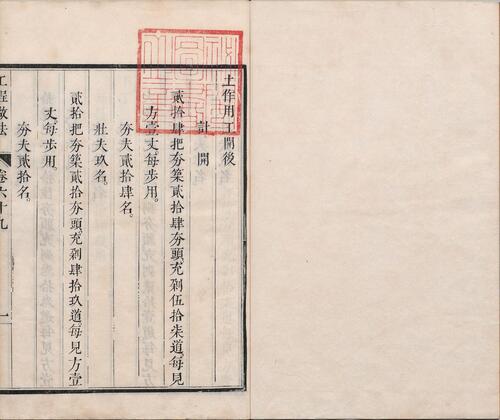 土作用工開後
計開
貳拾肆把夯築貳拾肆夯頭充剁伍拾柒道每見
方壹丈每步用
夯夫貳拾肆名
壯夫玖名
貳拾把夯築貳拾夯頭充剁肆拾玖道每見方壹
丈每步用
夯夫貳拾名
工程做法
卷六十九
一